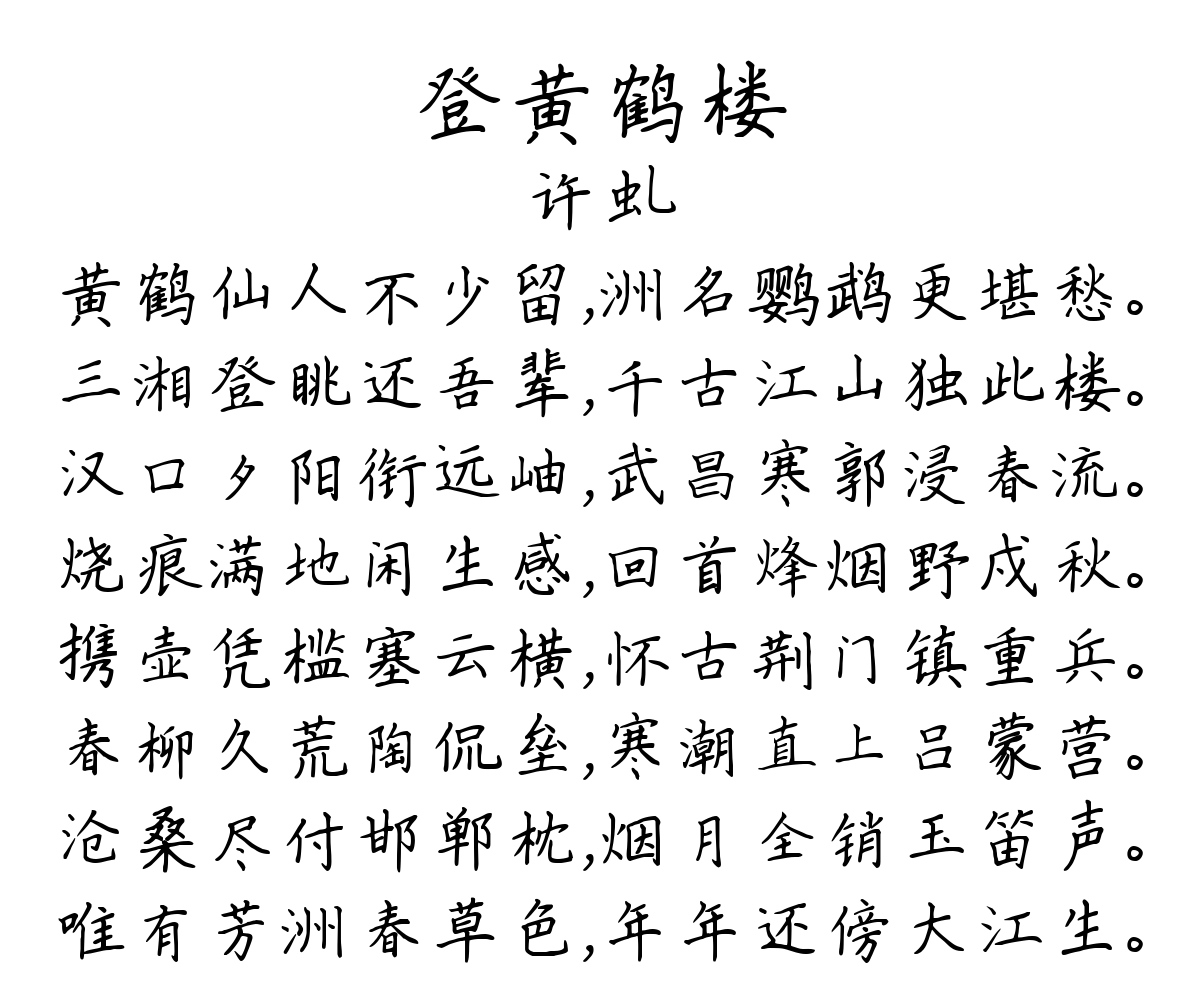 登黄鹤楼
许虬
黄鹤仙人不少留,洲名鹦鹉更堪愁。
三湘登眺还吾辈,千古江山独此楼。
汉口夕阳衔远岫,武昌寒郭浸春流。
烧痕满地闲生感,回首烽烟野戍秋。
携壶凭槛塞云横,怀古荆门镇重兵。
春柳久荒陶侃垒,寒潮直上吕蒙营。
沧桑尽付邯郸枕,烟月全销玉笛声。
唯有芳洲春草色,年年还傍大江生。